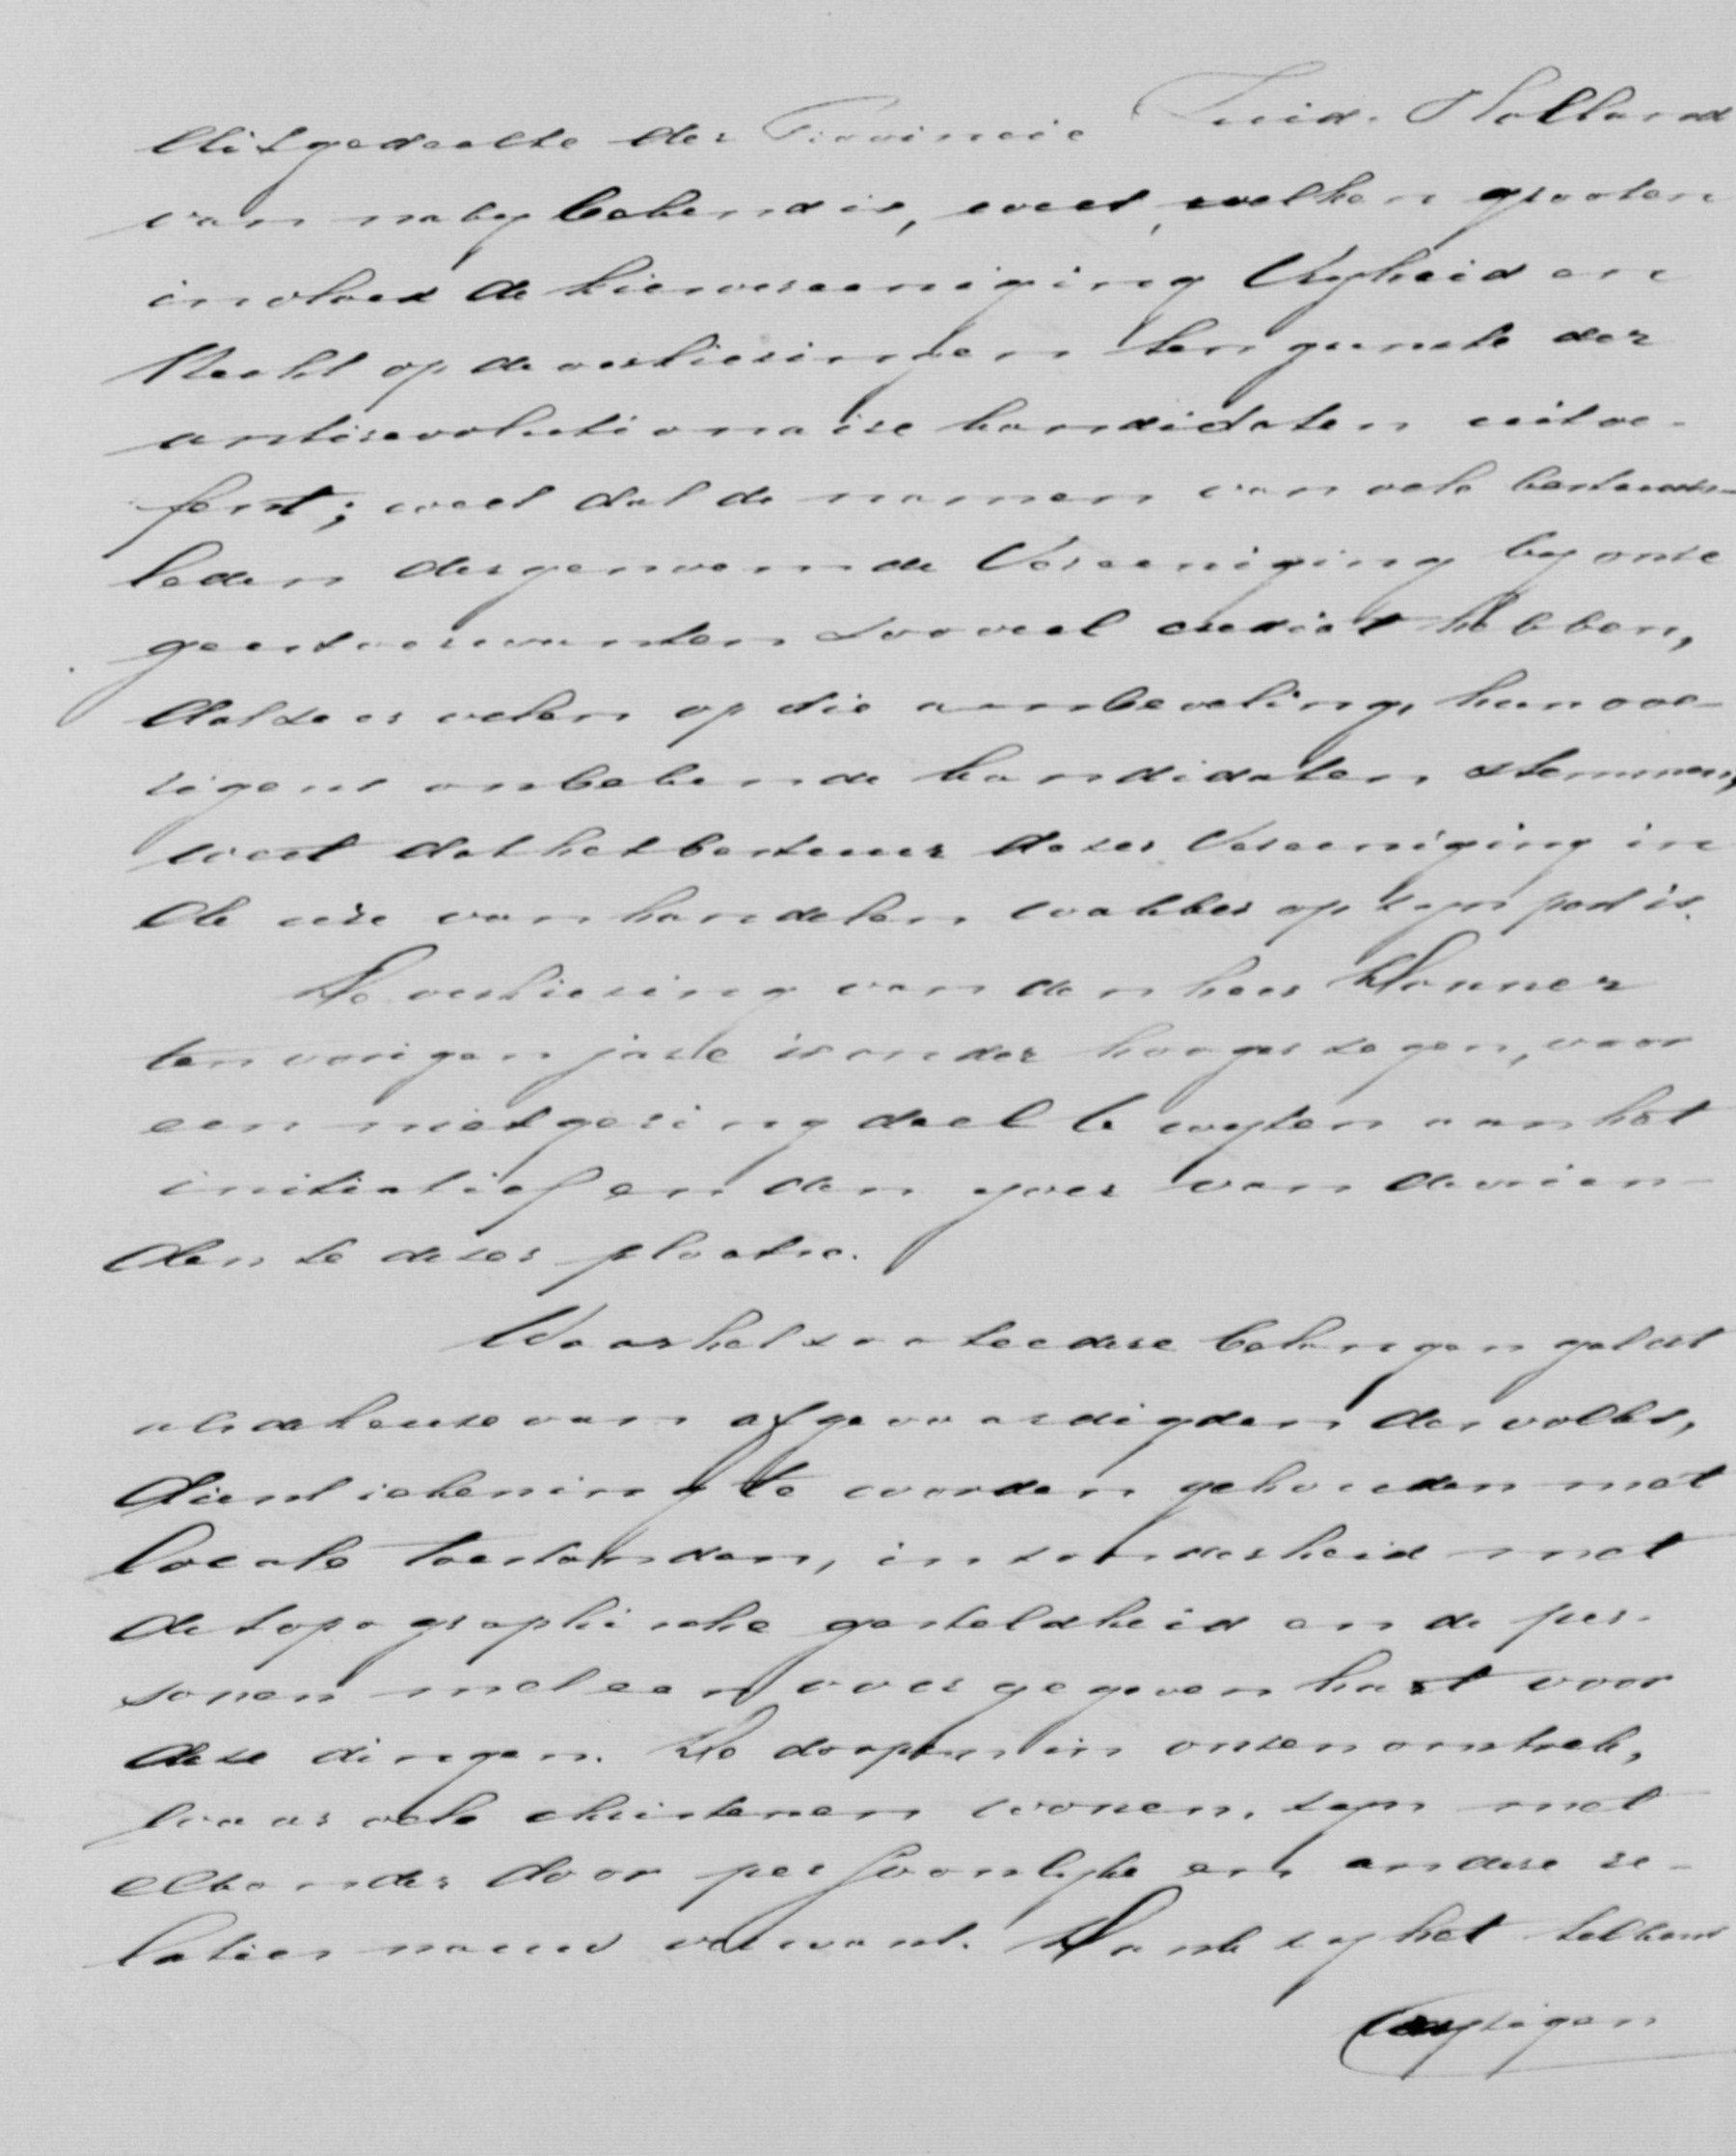 dit gedeelte der Provincie Zuid-Holland
van naby bekend is, weet, welken grooten
invloed de kiesvereeniging Vryheid en
Recht op de verkiesingen ten gunste der
antirevolutionaire kandidaten uitoe-
fent; weet dat de namen van vele bestuurs-
leden der genoemde Vereeniging by onse
geestverwanten zooveel crediet hebben,
dat ze er velen op die aanbeveling, hun ove-
rigens onbekende kandidaten, stemmen,
weet dat het bestuur dezer Vereeniging in
de ure van handelen wakker op zyn post is.
De verkiesing van den heer Donner
ten vorigen jare is onder hooger zegen, voor
een niet gering deel te wyten aan het
initiatief en den yver van de vrien-
den te dezer plaatse.
Waar het zoo teedere belangen geldt
als de keuze van afgevaardigden des volks,
dient rekening te worden gehouden met
locale toestanden, inzonderheid met
de topographische gesteldheid en de per-
sonen met een overgegeven hart voor
deze dingen. De dorpen in onzen omtrek,
waar vele christenen wonen, zyn met
elkander door persoonlyke en andere re-
laties nauw verwant. Dank zy het telkens